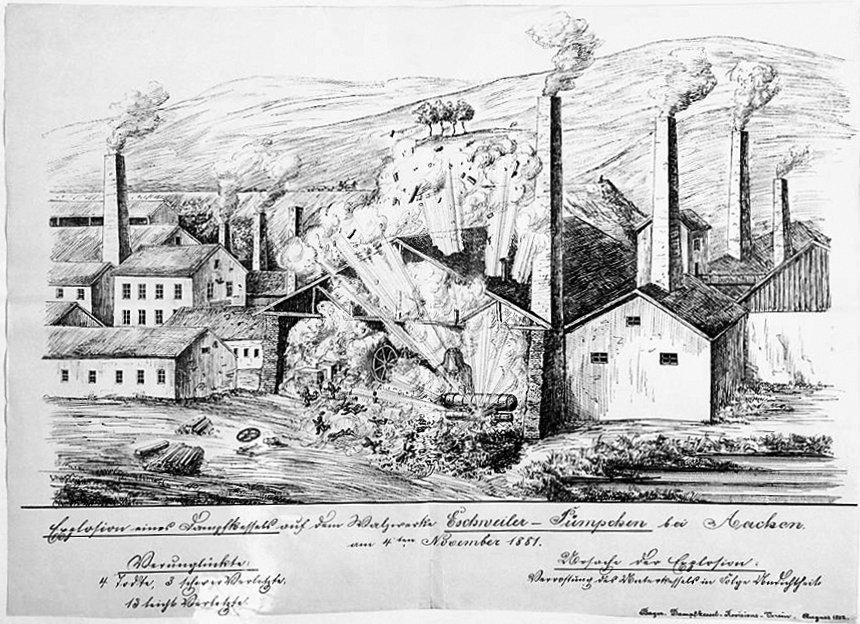 Explosion eines Dampfkessels auf dem Walzwerke Eschweiler - Pümpchen bei Aachen.
am 4ten November 1881.
Verunglückte:
4 Todte, 3 schwer Verletzte,
13 leicht Verletzte.
Ursache der Explosion:
Verrostung des Unterkessels in Folge Undichtheit
Bayer. Dampfkessel-Revisions-Verein. August 1882.